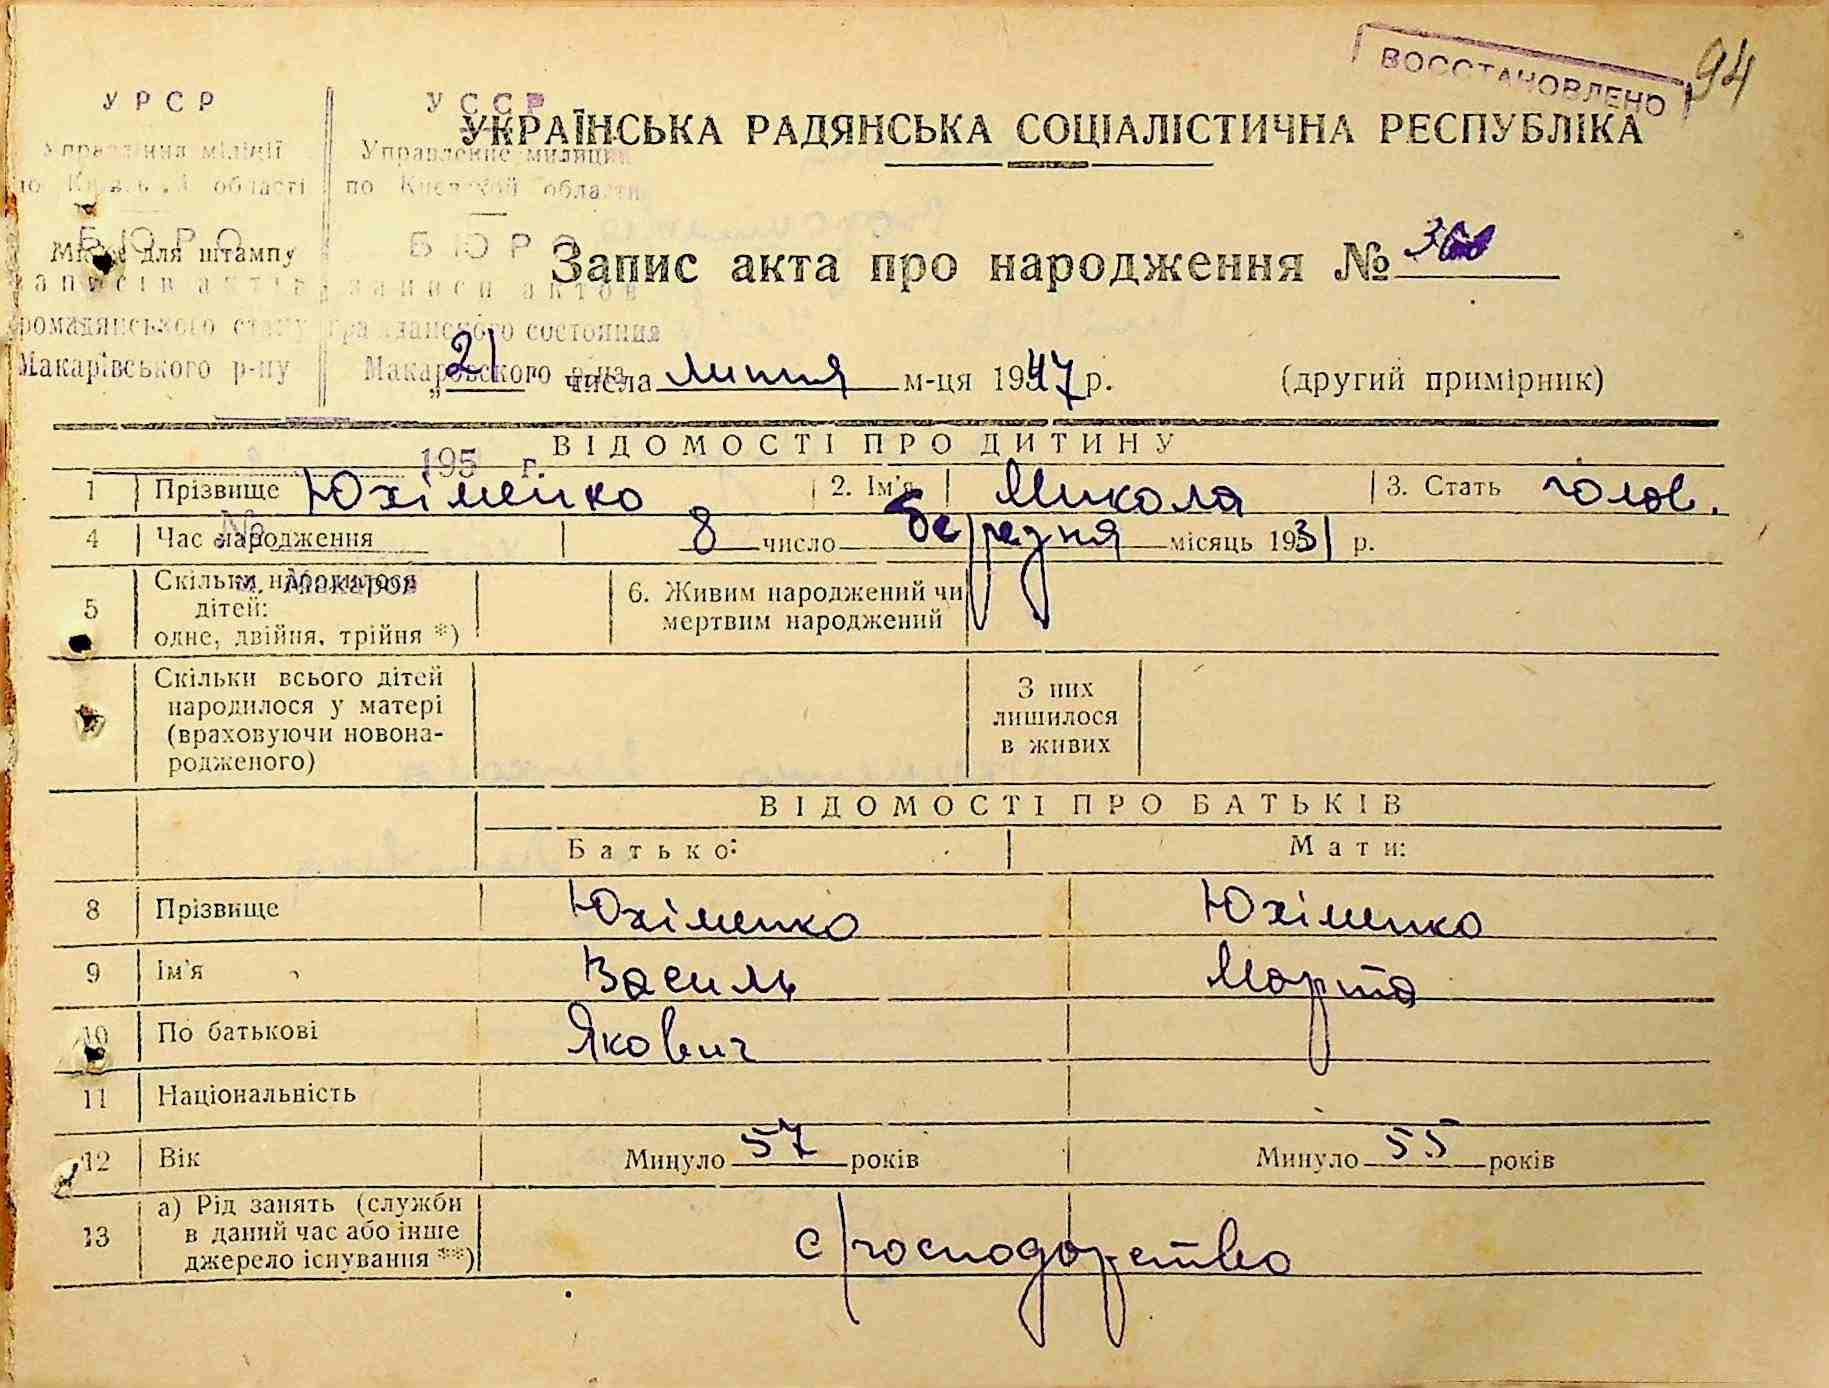 ВОССТАНОВЛЕНО 94
УРСР УССР
УКРАЇНСЬКА РАДЯНСЬКА СОЦІАЛІСТИЧНА РЕСПУБЛІКА
Управління міліції Управление милиции
по Київській області по Киевской области
БЮРО БЮРО
Місце для штампу
Запис акта про народження №
записів актів записи актов
громадянського стану гражданского состояния
Макарівського р-ну Макаровского р-на
„21" числа липня м-ця 1947 р. (другий примірник)
ВІДОМОСТІ ПРО ДИТИНУ
195 г.
1 Прізвище Юхіменко 2. Ім'я Микола 3. Стать голов.
№
4 Час народження 8 число березня місяць 1931 р.
м. Макаров
5 Скільки народилося дітей: одне, двійня, трійня *) 6. Живим народжений чи мертвим народжений
Скільки всього дітей народилося у матері (враховуючи новонародженого) З них лишилося в живих
ВІДОМОСТІ ПРО БАТЬКІВ
Батько: Мати:
8 Прізвище Юхіменко Юхіменко
9 Ім'я Василь Марта
10 По батькові Якович
11 Національність
12 Вік Минуло 57 років Минуло 55 років
13 а) Рід занять (служби в даний час або інше джерело існування **) с/господарство